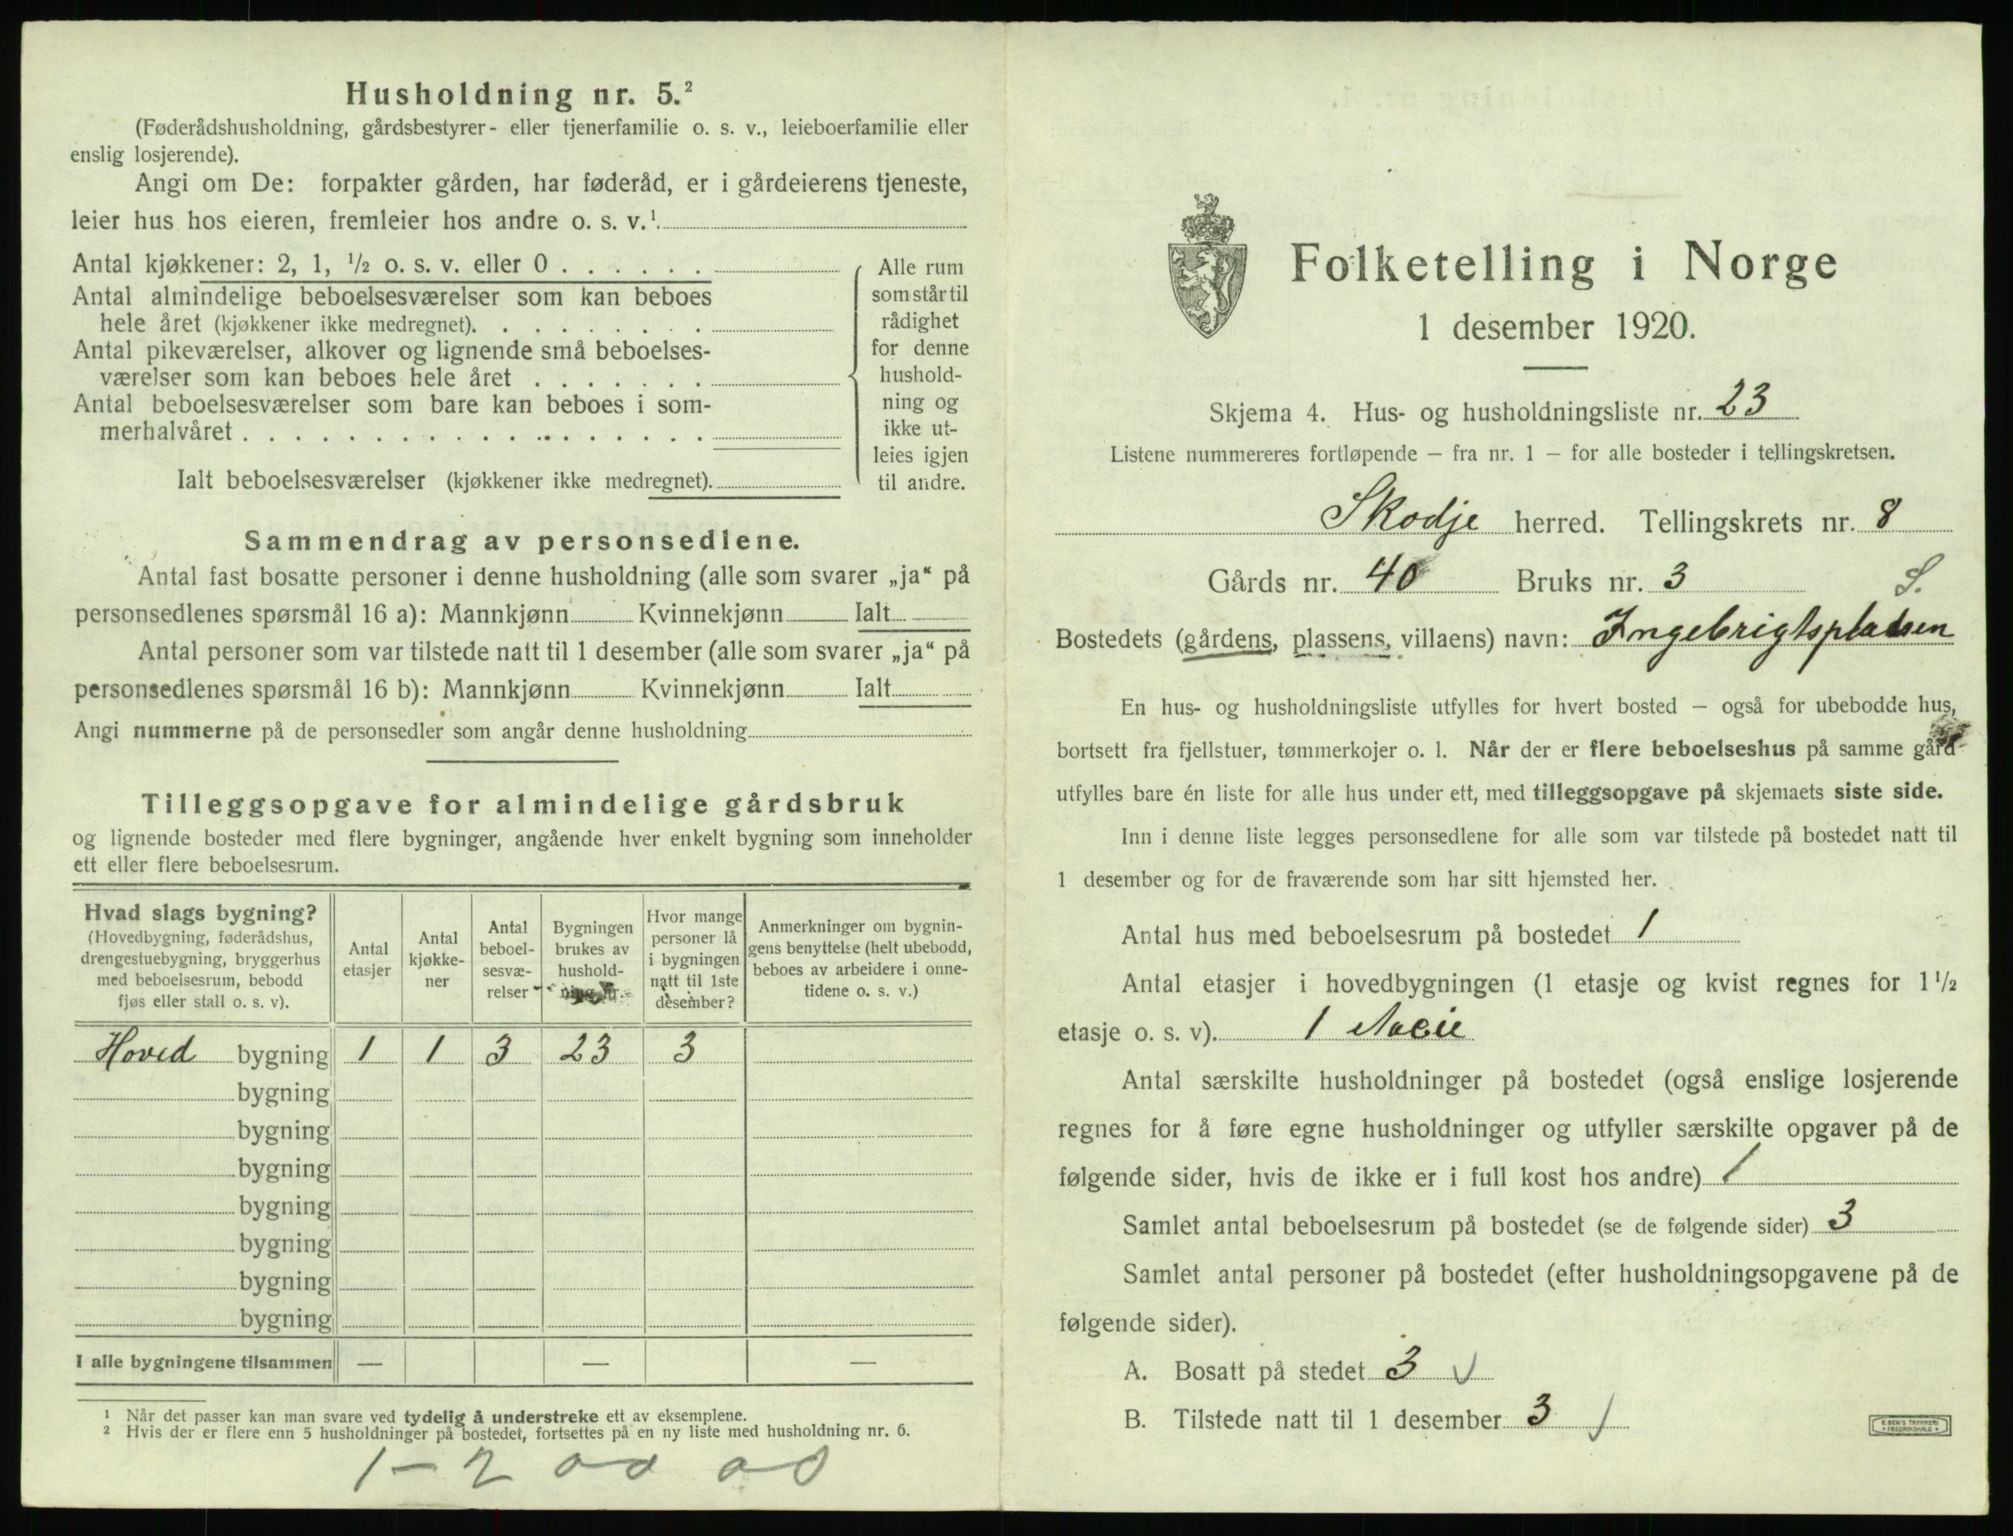 Husholdning nr. 5.²
(Føderådshusholdning, gårdsbestyrer- eller tjenerfamilie o. s. v., leieboerfamilie eller
enslig losjerende).
Angi om De: forpakter gården, har føderåd, er i gårdeierens tjeneste,
leier hus hos eieren, fremleier hos andre o. s. v.¹
Antal kjøkkener: 2, 1, ½ o. s. v. eller 0 . . . . . .
Antal almindelige beboelsesværelser som kan beboes
hele året (kjøkkener ikke medregnet). . . . . . . . .
Antal pikeværelser, alkover og lignende små beboelses-
værelser som kan beboes hele året . . . . . . .
Antal beboelsesværelser som bare kan beboes i som-
merhalvåret . . . . . . . . . . . . . . . . . .
Ialt beboelsesværelser (kjøkkener ikke medregnet).
Alle rum
som står til
rådighet
for denne
hushold-
ning og
ikke ut-
leies igjen
til andre.
Sammendrag av personsedlene.
Antal fast bosatte personer i denne husholdning (alle som svarer „ja“ på
personsedlenes spørsmål 16 a): Mannkjønn Kvinnekjønn Ialt
Antal personer som var tilstede natt til 1 desember (alle som svarer „ja“ på
personsedlenes spørsmål 16 b): Mannkjønn Kvinnekjønn Ialt
Angi nummerne på de personsedler som angår denne husholdning
Tilleggsopgave for almindelige gårdsbruk
og lignende bosteder med flere bygninger, angående hver enkelt bygning som inneholder
ett eller flere beboelsesrum.
Hvad slags bygning?
(Hovedbygning, føderådshus,
drengestuebygning, bryggerhus
med beboelsesrum, bebodd
fjøs eller stall o. s. v).
Antal
etasjer
Antal
kjøkke-
ner
Antal
beboel-
sesvæ-
relser
Bygningen
brukes av
hushold-
ning nr.
Hvor mange
personer lå
i bygningen
natt til 1ste
desember?
Anmerkninger om bygnin-
gens benyttelse (helt ubebodd,
beboes av arbeidere i onne-
tidene o. s. v.)
Hoved bygning 1 1 3 23 3
bygning
bygning
bygning
bygning
bygning
bygning
bygning
I alle bygningene tilsammen — — —
¹ Når det passer kan man svare ved tydelig å understreke ett av eksemplene.
² Hvis der er flere enn 5 husholdninger på bostedet, fortsettes på en ny liste med husholdning nr. 6.
1-2 00 00
Folketelling i Norge
1 desember 1920.
Skjema 4. Hus- og husholdningsliste nr. 23
Listene nummereres fortløpende – fra nr. 1 – for alle bosteder i tellingskretsen.
Skodje herred. Tellingskrets nr. 8
Gårds nr. 40 Bruks nr. 3 S.
Bostedets (gårdens, plassens, villaens) navn: Ingebrigtspladsen
En hus- og husholdningsliste utfylles for hvert bosted – også for ubebodde hus,
bortsett fra fjellstuer, tømmerkojer o. l. Når der er flere beboelseshus på samme gård
utfylles bare én liste for alle hus under ett, med tilleggsopgave på skjemaets siste side.
Inn i denne liste legges personsedlene for alle som var tilstede på bostedet natt til
1 desember og for de fraværende som har sitt hjemsted her.
Antal hus med beboelsesrum på bostedet 1
Antal etasjer i hovedbygningen (1 etasje og kvist regnes for 1½
etasje o. s. v). 1
Antal særskilte husholdninger på bostedet (også enslige losjerende
regnes for å føre egne husholdninger og utfyller særskilte opgaver på de
følgende sider, hvis de ikke er i full kost hos andre) 1
Samlet antal beboelsesrum på bostedet (se de følgende sider) 3
Samlet antal personer på bostedet (efter husholdningsopgavene på de
følgende sider).
A. Bosatt på stedet 3
B. Tilstede natt til 1 desember 3